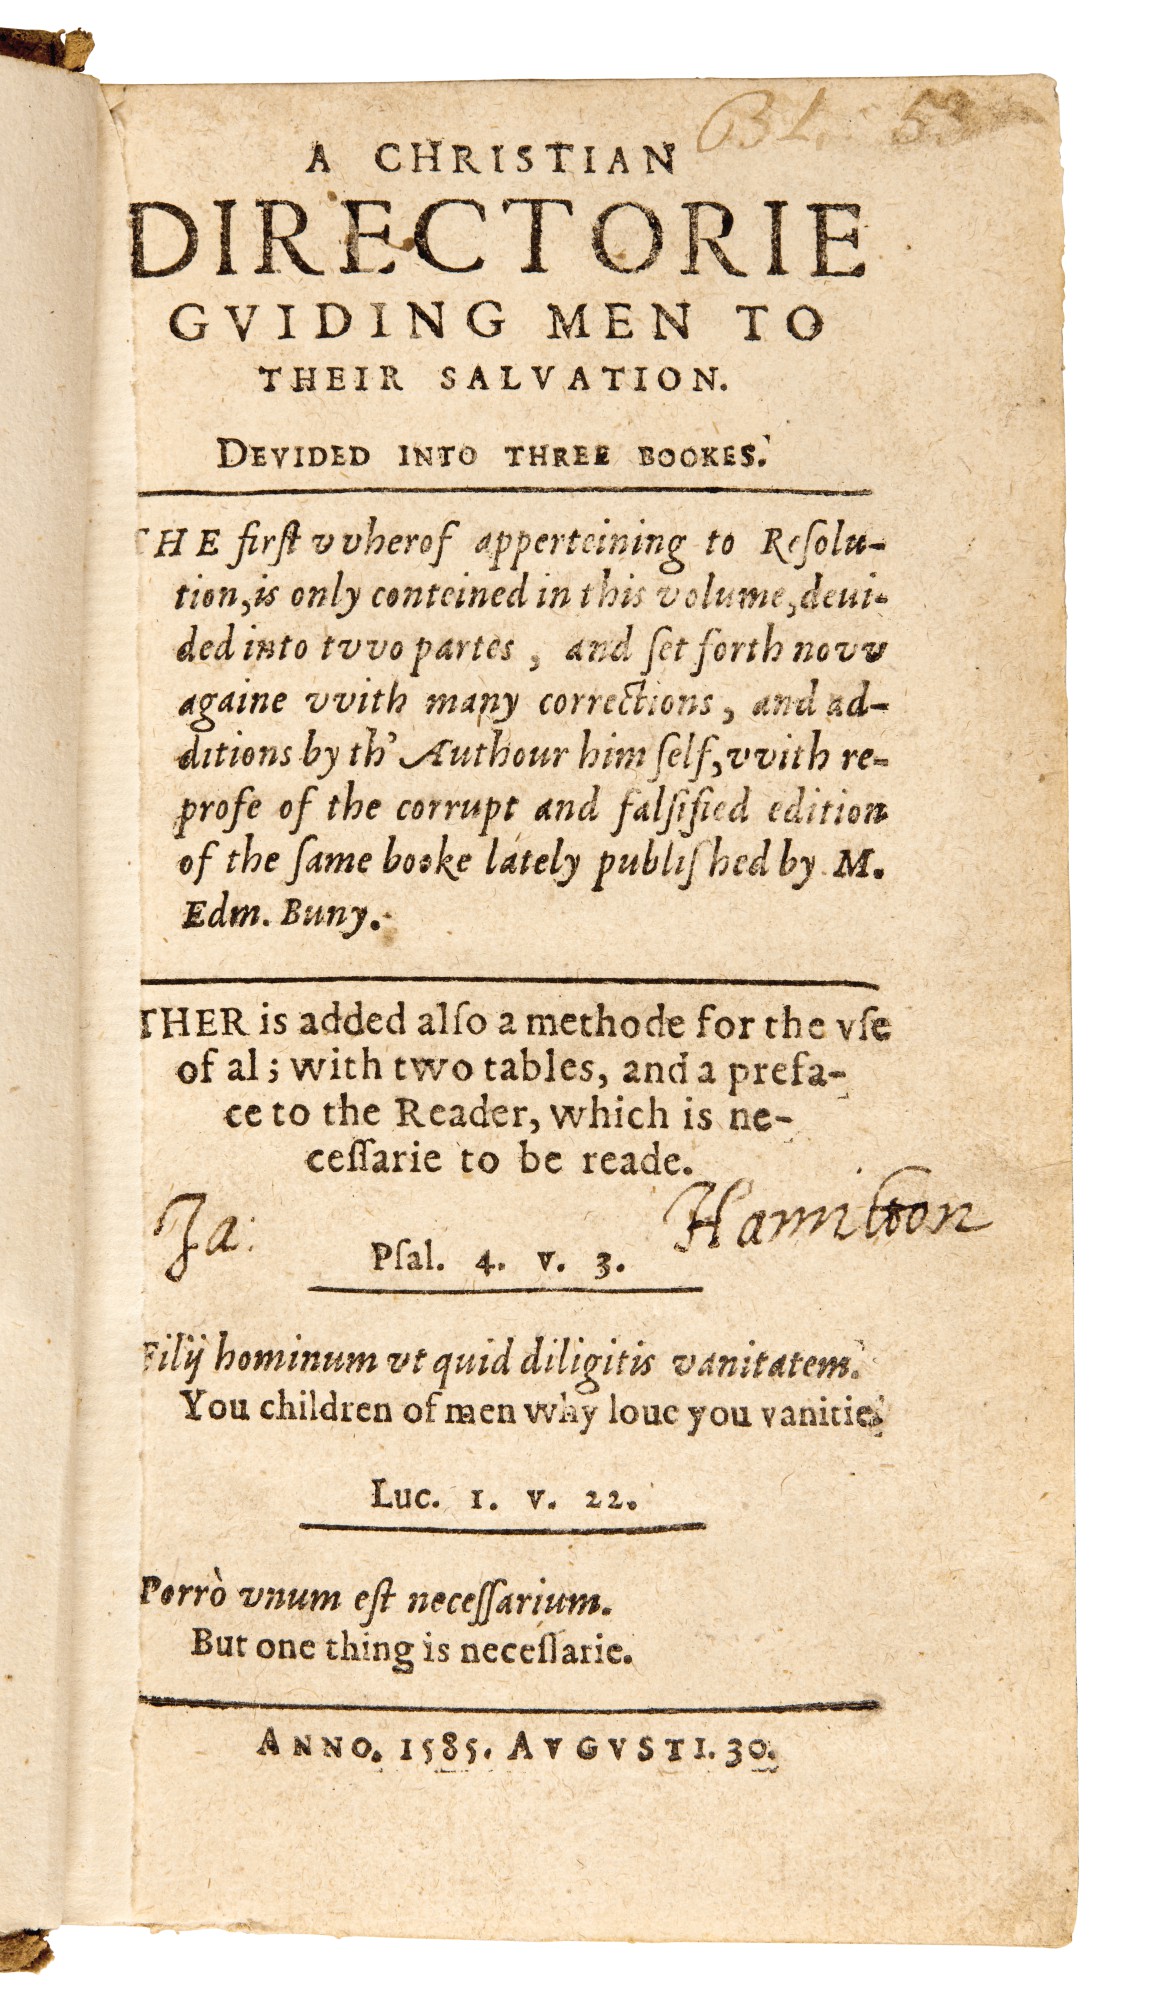 A CHRISTIAN
DIRECTORIE
GVIDING MEN TO
THEIR SALVATION.
DEVIDED INTO THREE BOOKES.
THE firſt vvherof apperteining to Reſolu-
tion, is only conteined in this volume, deui-
ded into tvvo partes, and ſet forth novv
againe vvith many corrections, and ad-
ditions by th' Authour him ſelf, vvith re-
profe of the corrupt and falſified edition
of the ſame booke lately publiſhed by M.
Edm. Buny.
THER is added alſo a methode for the vſe
of al; with two tables, and a prefa-
ce to the Reader, which is ne-
ceſſarie to be reade.
Ja: Hamilton
Pſal. 4. v. 3.
Filij hominum vt quid diligitis vanitatem.
You children of men why loue you vanitie
Luc. 1. v. 22.
Porrò vnum eſt neceſſarium.
But one thing is neceſſarie.
ANNO. 1585. AVGVSTI. 30.